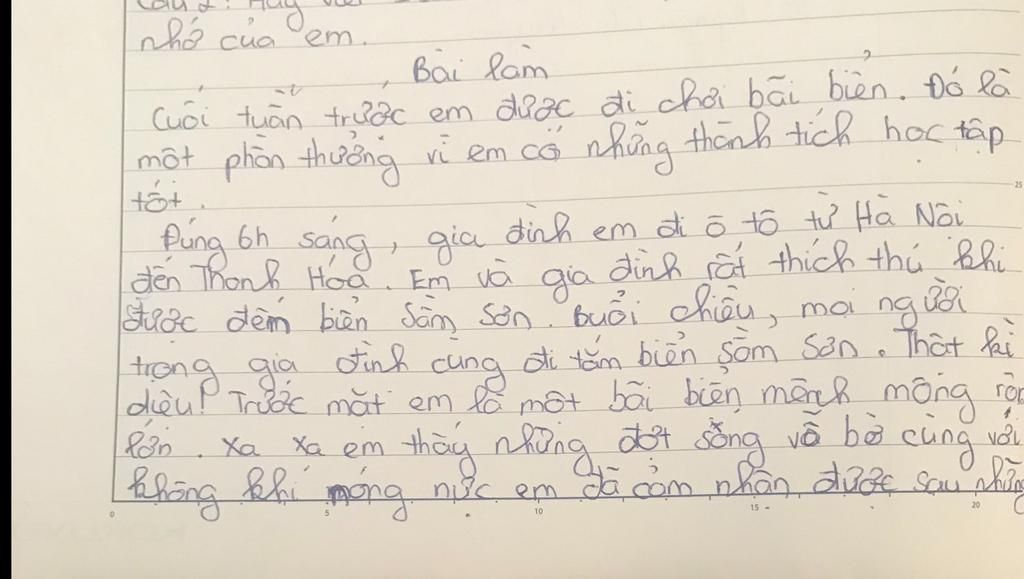 Câu 2: Hãy viết
nhớ của em.
Bài làm
Cuối tuần trước em được đi chơi bãi biển. Đó là
một phần thưởng vì em có những thành tích học tập
tốt.
Đúng 6h sáng, gia đình em đi ô tô từ Hà Nội
đến Thanh Hóa. Em và gia đình rất thích thú khi
được đếm biển Sầm Sơn. Buổi chiều, mọi người
trong gia đình cùng đi tắm biển Sầm Sơn. Thật kì
diệu! Trước mắt em là một bãi biển mênh mông rộng
lớn. Xa xa em thấy những đợt sóng vỗ bờ cùng với
không khí nóng nực em đã cảm nhận được sau những
25
0 5 10 15 20